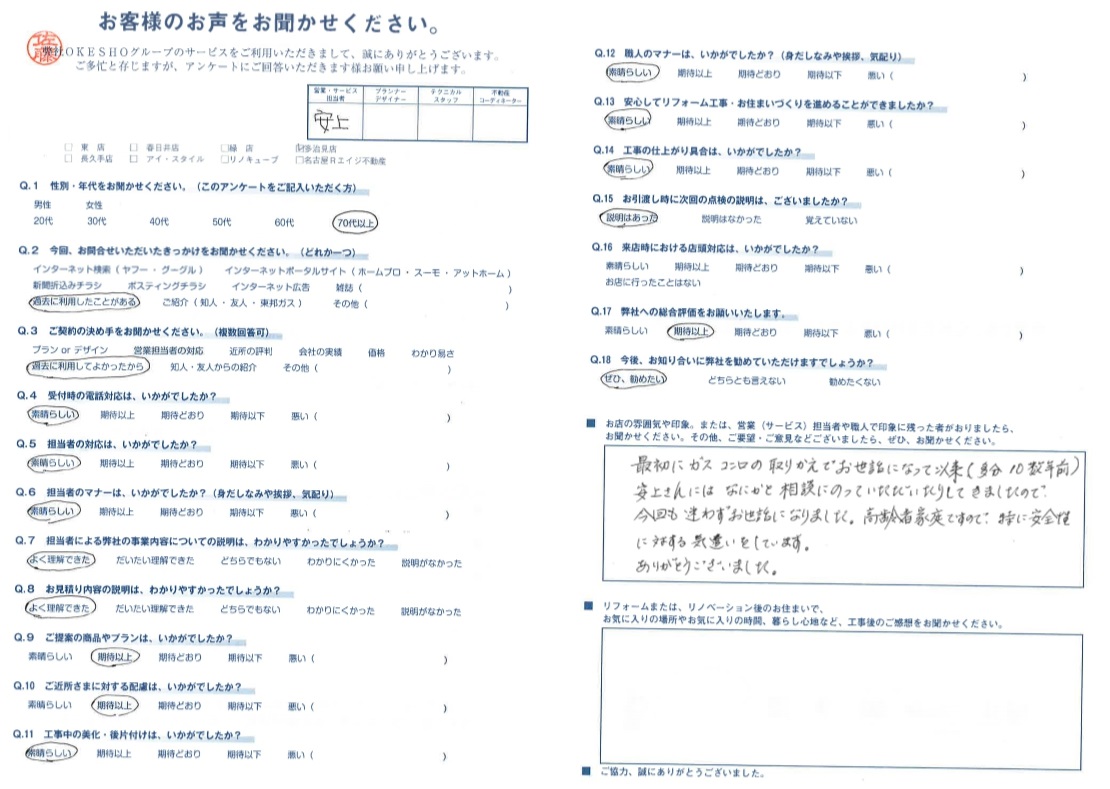 お客様のお声をお聞かせください。
佐藤
弊社OKESHOグループのサービスをご利用いただきまして、誠にありがとうございます。
ご多忙と存じますが、アンケートにご回答いただきます様お願い申し上げます。
営業・サービス担当者 プランナーデザイナー テクニカルスタッフ 不動産コーディネーター
安上
□ 東 店 □ 春日井店 □緑 店 □多治見店
□ 長久手店 □ アイ・スタイル □リノキューブ □名古屋Rエイジ不動産
Q.1 性別・年代をお聞かせください。（このアンケートをご記入いただく方）
男性 女性
20代 30代 40代 50代 60代 70代以上
Q.2 今回、お問合せいただいたきっかけをお聞かせください。（どれか一つ）
インターネット検索（ヤフー・グーグル） インターネットポータルサイト（ホームプロ・スーモ・アットホーム）
新聞折込みチラシ ポスティングチラシ インターネット広告 雑誌（ ）
過去に利用したことがある ご紹介（知人・友人・東邦ガス） その他（ ）
Q.3 ご契約の決め手をお聞かせください。（複数回答可）
プラン or デザイン 営業担当者の対応 近所の評判 会社の実績 価格 わかり易さ
過去に利用してよかったから 知人・友人からの紹介 その他（ ）
Q.4 受付時の電話対応は、いかがでしたか？
素晴らしい 期待以上 期待どおり 期待以下 悪い（ ）
Q.5 担当者の対応は、いかがでしたか？
素晴らしい 期待以上 期待どおり 期待以下 悪い（ ）
Q.6 担当者のマナーは、いかがでしたか？（身だしなみや挨拶、気配り）
素晴らしい 期待以上 期待どおり 期待以下 悪い（ ）
Q.7 担当者による弊社の事業内容についての説明は、わかりやすかったでしょうか？
よく理解できた だいたい理解できた どちらでもない わかりにくかった 説明がなかった
Q.8 お見積り内容の説明は、わかりやすかったでしょうか？
よく理解できた だいたい理解できた どちらでもない わかりにくかった 説明がなかった
Q.9 ご提案の商品やプランは、いかがでしたか？
素晴らしい 期待以上 期待どおり 期待以下 悪い（ ）
Q.10 ご近所さまに対する配慮は、いかがでしたか？
素晴らしい 期待以上 期待どおり 期待以下 悪い（ ）
Q.11 工事中の美化・後片付けは、いかがでしたか？
素晴らしい 期待以上 期待どおり 期待以下 悪い（ ）
Q.12 職人のマナーは、いかがでしたか？（身だしなみや挨拶、気配り）
素晴らしい 期待以上 期待どおり 期待以下 悪い（ ）
Q.13 安心してリフォーム工事・お住まいづくりを進めることができましたか？
素晴らしい 期待以上 期待どおり 期待以下 悪い（ ）
Q.14 工事の仕上がり具合は、いかがでしたか？
素晴らしい 期待以上 期待どおり 期待以下 悪い（ ）
Q.15 お引渡し時に次回の点検の説明は、ございましたか？
説明はあった 説明はなかった 覚えていない
Q.16 来店時における店頭対応は、いかがでしたか？
素晴らしい 期待以上 期待どおり 期待以下 悪い（ ）
お店に行ったことはない
Q.17 弊社への総合評価をお願いいたします。
素晴らしい 期待以上 期待どおり 期待以下 悪い（ ）
Q.18 今後、お知り合いに弊社を勧めていただけますでしょうか？
ぜひ、勧めたい どちらとも言えない 勧めたくない
■ お店の雰囲気や印象。または、営業（サービス）担当者や職人で印象に残った者がおりましたら、
お聞かせください。その他、ご要望・ご意見などございましたら、ぜひ、お聞かせください。
最初にガスコンロの取りかえでお世話になって以来（多分10数年前）
安上さんにはなにかと相談にのっていただいたりしてきましたので
今回も迷わずお世話になりました。高齢者家庭ですので、特に安全性
に対する気遣いをしています。
ありがとうございました。
■ リフォームまたは、リノベーション後のお住まいで、
お気に入りの場所やお気に入りの時間、暮らし心地など、工事後のご感想をお聞かせください。
■ ご協力、誠にありがとうございました。